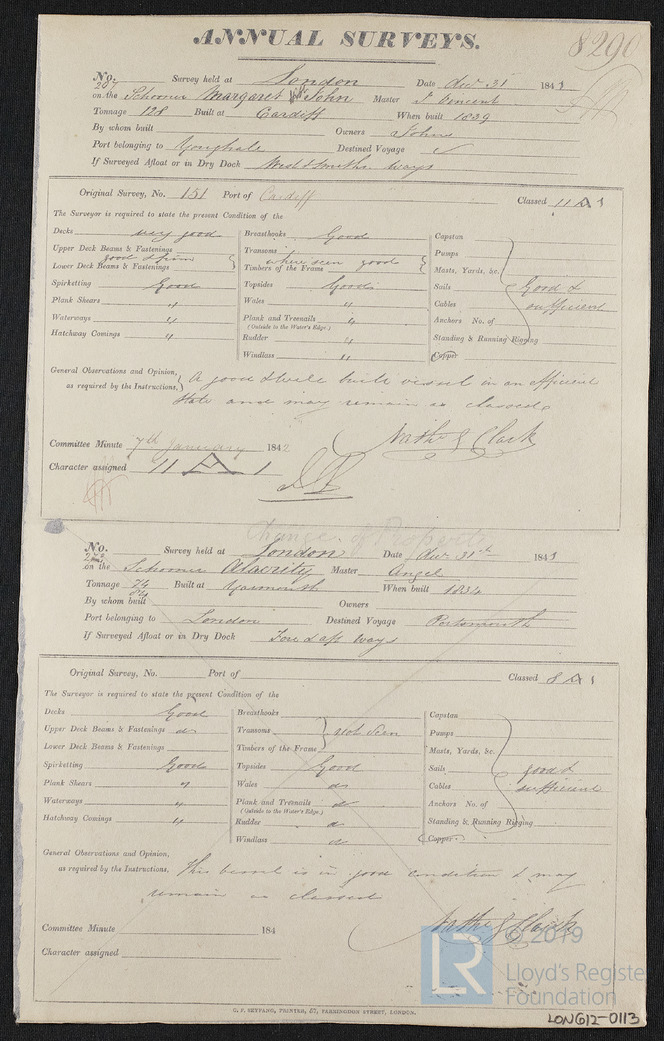 ANNUAL SURVEYS.
8290
No. Survey held at London Date Decr 31 1841
on the Schooner Margaret & John Master J. Vincent
Tonnage 128 Built at Cardiff When built 1839
By whom built Owners Johns
Port belonging to Youghale Destined Voyage
If Surveyed Afloat or in Dry Dock West & Smiths Ways
Original Survey, No. 151 Port of Cardiff Classed 11 A 1
The Surveyor is required to state the present Condition of the
Decks very good
Upper Deck Beams & Fastenings
good & firm
Lower Deck Beams & Fastenings
Spirketting Good
Plank Shears "
Waterways "
Hatchway Comings "
Breasthooks Good
Transoms
where seen good
Timbers of the Frame
Topsides Good
Wales "
Plank and Treenails "
(Outside to the Water's Edge.)
Rudder "
Windlass "
Capstan
Pumps
Masts, Yards, &c.
Sails Good &
Cables sufficient
Anchors No. of
Standing & Running Rigging
Copper
General Observations and Opinion,
as required by the Instructions, A good & well built vessel in an efficient
state and may remain as classed
Nathl. G Clark
Committee Minute 7th January 1842
Character assigned 11 A 1
Change of Property
No. Survey held at London Date Decr 31st 1841
on the Schooner Alacrity Master Angel
Tonnage 74/84 Built at Yarmouth When built 1834
By whom built Owners
Port belonging to London Destined Voyage Portsmouth
If Surveyed Afloat or in Dry Dock Fore & aft Ways
Original Survey, No. Port of Classed 8 A 1
The Surveyor is required to state the present Condition of the
Decks Good
Upper Deck Beams & Fastenings do
Lower Deck Beams & Fastenings
Spirketting Good
Plank Shears "
Waterways "
Hatchway Comings "
Breasthooks
Transoms not seen
Timbers of the Frame
Topsides Good
Wales do
Plank and Treenails do
(Outside to the Water's Edge.)
Rudder do
Windlass do
Capstan
Pumps
Masts, Yards, &c.
Sails good &
Cables sufficient
Anchors No. of
Standing & Running Rigging
Copper
General Observations and Opinion,
as required by the Instructions, This vessel is in good condition & may
remain as classed
Nathl. G Clark
Committee Minute 184
Character assigned
G. F. SEYFANG, PRINTER, 57, FARRINGDON STREET, LONDON.
LR © 2019
Lloyd's Register
Foundation
LON612-0113